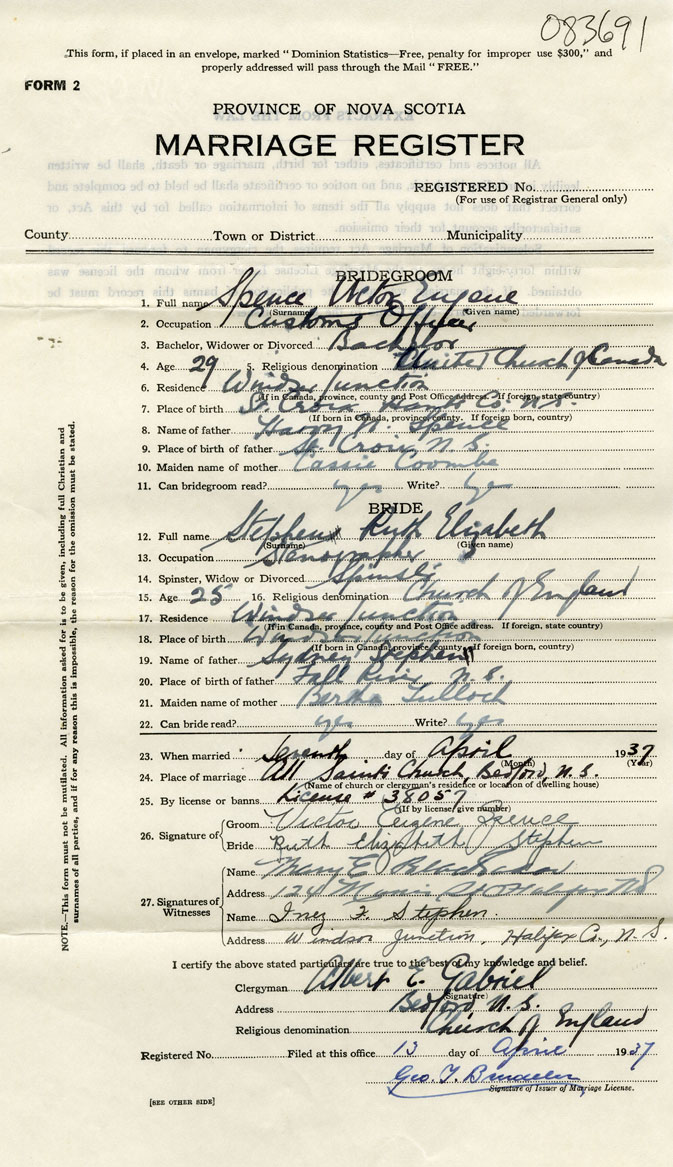 083691
This form, if placed in an envelope, marked "Dominion Statistics—Free, penalty for improper use $300," and
properly addressed will pass through the Mail "FREE."
FORM 2
PROVINCE OF NOVA SCOTIA
MARRIAGE REGISTER
REGISTERED No.
(For use of Registrar General only)
County Town or District Municipality
BRIDEGROOM
1. Full name Spence Victor Eugene
(Surname) (Given name)
2. Occupation Customs Officer
3. Bachelor, Widower or Divorced Bachelor
4. Age 29 5. Religious denomination United Church of Canada
6. Residence Windsor Junction
(If in Canada, province, county and Post Office address. If foreign, state country)
7. Place of birth St. Croix Hants Co. N.S.
(If born in Canada, province, county. If foreign born, country)
8. Name of father Harry Spence
9. Place of birth of father St. Croix, N.S.
10. Maiden name of mother Cassie Coombe
11. Can bridegroom read? yes Write? yes
BRIDE
12. Full name Stephen Ruth Elizabeth
(Surname) (Given name)
13. Occupation Stenographer
14. Spinster, Widow or Divorced
15. Age 25 16. Religious denomination Church of England
17. Residence Windsor Junction
(If in Canada, province, county and Post Office address. If foreign, state country)
18. Place of birth Windsor Junction
(If born in Canada, province, county. If foreign born, country)
19. Name of father Sydney Stephen
20. Place of birth of father Fall River, N.S.
21. Maiden name of mother Bertha Tulloch
22. Can bride read? yes Write? yes
23. When married seventh day of April 1937
(Month) (Year)
24. Place of marriage All Saints Church, Bedford, N.S.
(Name of church or clergyman's residence or location of dwelling house)
25. By license or banns License # 38057
(If by license, give number)
26. Signature of Groom Victor Eugene Spence
Bride Ruth Elizabeth Stephen
27. Signatures of Witnesses
Name Mary E
Address 124 St Halifax NS
Name Inez F. Stephen.
Address Windsor Junction, Halifax Co., N.S.
I certify the above stated particulars are true to the best of my knowledge and belief.
Clergyman Albert E. Gabriel
(Signature)
Address Bedford, N.S.
Religious denomination Church of England
Registered No. Filed at this office 13 day of April 1937
Geo. T.
Signature of Issuer of Marriage License.
[SEE OTHER SIDE]
NOTE.—This form must not be mutilated. All information asked for is to be given, including full Christian and
surnames of all parties, and if for any reason this is impossible, the reason for the omission must be stated.